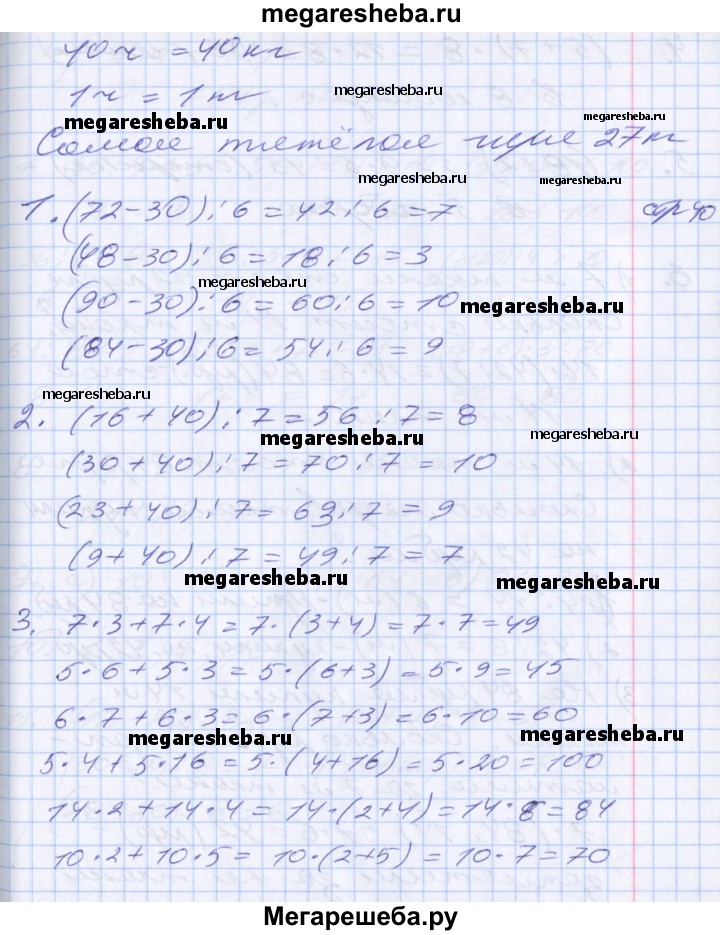 megaresheba.ru
40 ч = 40 кг
1 ч = 1 кг
megaresheba.ru
megaresheba.ru
megaresheba.ru
Самое тяжёлое 27 кг
megaresheba.ru
megaresheba.ru
1. (72-30) : 6 = 42 : 6 = 7
стр 40
(48-30) : 6 = 18 : 6 = 3
megaresheba.ru
(90-30) : 6 = 60 : 6 = 10
megaresheba.ru
(84-30) : 6 = 54 : 6 = 9
megaresheba.ru
2. (16+40) : 7 = 56 : 7 = 8
megaresheba.ru
megaresheba.ru
(30+40) : 7 = 70 : 7 = 10
(23+40) : 7 = 63 : 7 = 9
(9+40) : 7 = 49 : 7 = 7
megaresheba.ru
megaresheba.ru
3. 7·3+7·4 = 7·(3+4) = 7·7 = 49
5·6+5·3 = 5·(6+3) = 5·9 = 45
6·7+6·3 = 6·(7+3) = 6·10 = 60
megaresheba.ru
megaresheba.ru
5·4+5·16 = 5·(4+16) = 5·20 = 100
14·2+14·4 = 14·(2+4) = 14·6 = 84
10·2+10·5 = 10·(2+5) = 10·7 = 70
Мегарешеба.ру